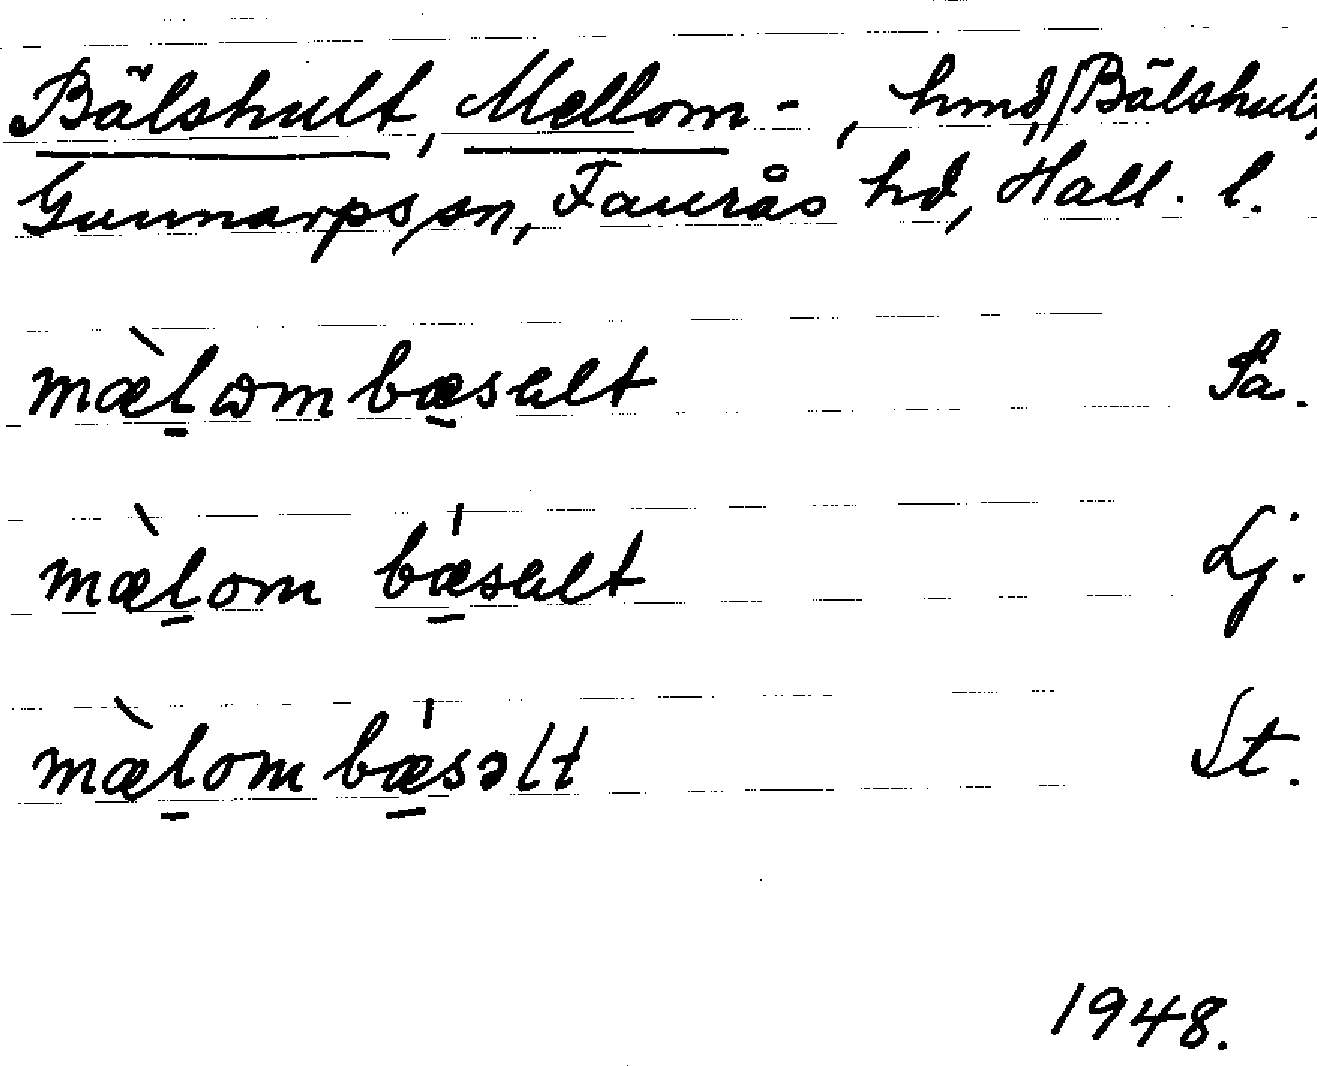 Bälshult, Mellom-, hmd, / Bälshult,
Gunnarps sn, Faurås hd, Hall. l.
mæ̀lombæsalt Sa.
mæ̀lom bǽsalt Lj.
mæ̀lombǽsəlt St.
1948.